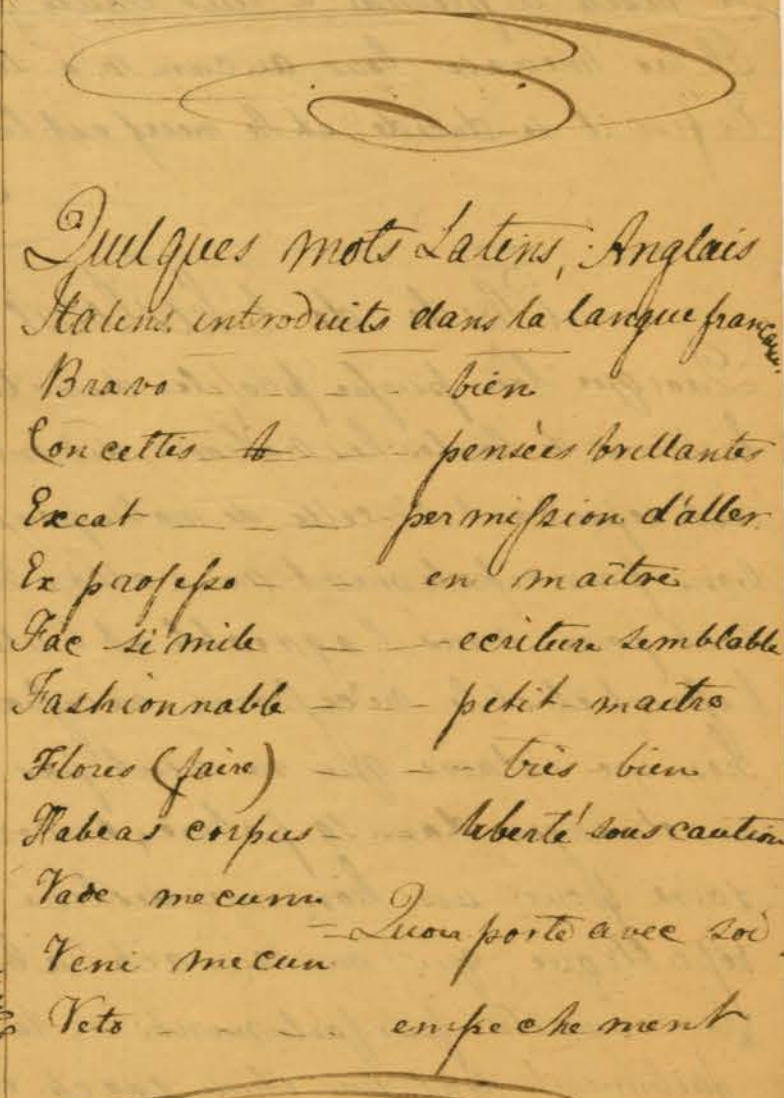 Quelques mots Latins, Anglais
Italiens introduits dans la langue française.
Bravo - - - - bien
Concettis - - - pensées brillantes
Execat - - - permission d'aller
Ex professo - - en maitre
Fac simile - - - ecriture semblable
Fashionnable - - - petit maitre
Flores (faire) - - - très bien
Habeas corpus - liberté sous caution
Vade mecum
= Quon porte avec soi
Veni mecun
Veto - - empechement